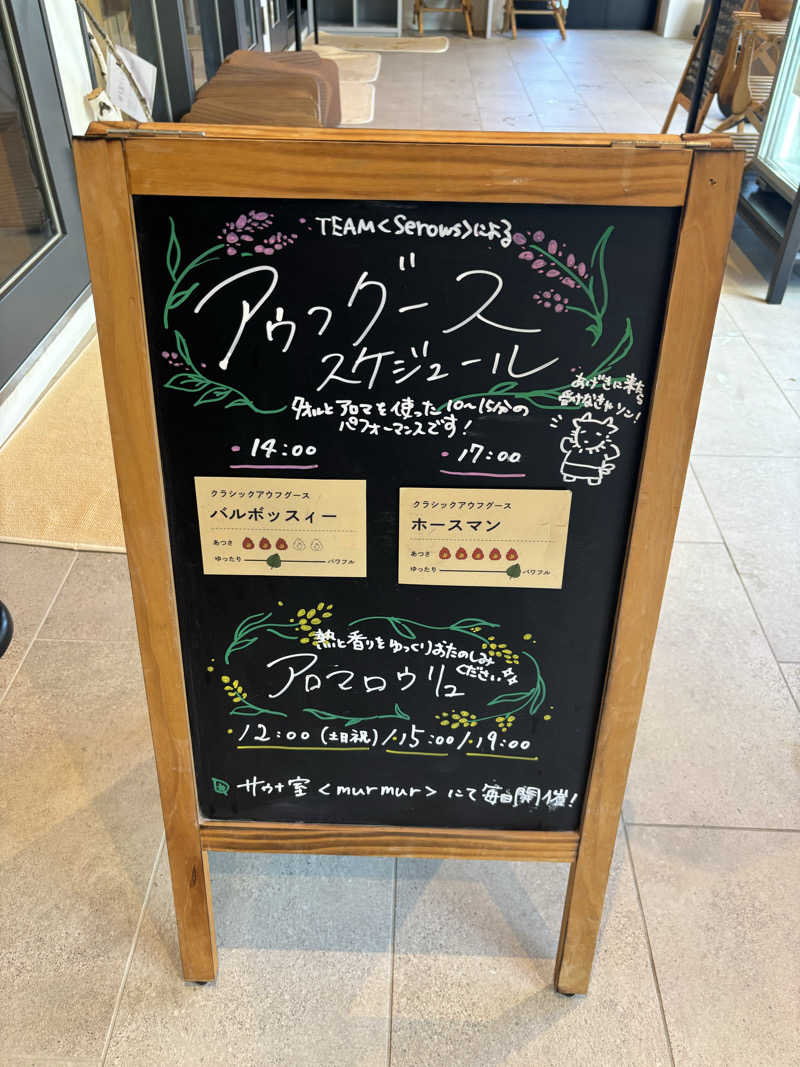 TEAM<Serows>による
アウフグース
スケジュール
タオルとアロマを使った10〜15分の
パフォーマンスです!
あげきに来たら
受けなきゃソン!
14:00
17:00
クラシックアウフグース
バルボッスィー
あつさ
ゆったり
パワフル
クラシックアウフグース
ホースマン
あつさ
ゆったり
パワフル
熱と香りをゆっくりおたのしみ
ください
アロマロウリュ
12:00(土日祝)/15:00/19:00
サウナ室<murmur>にて毎日開催!